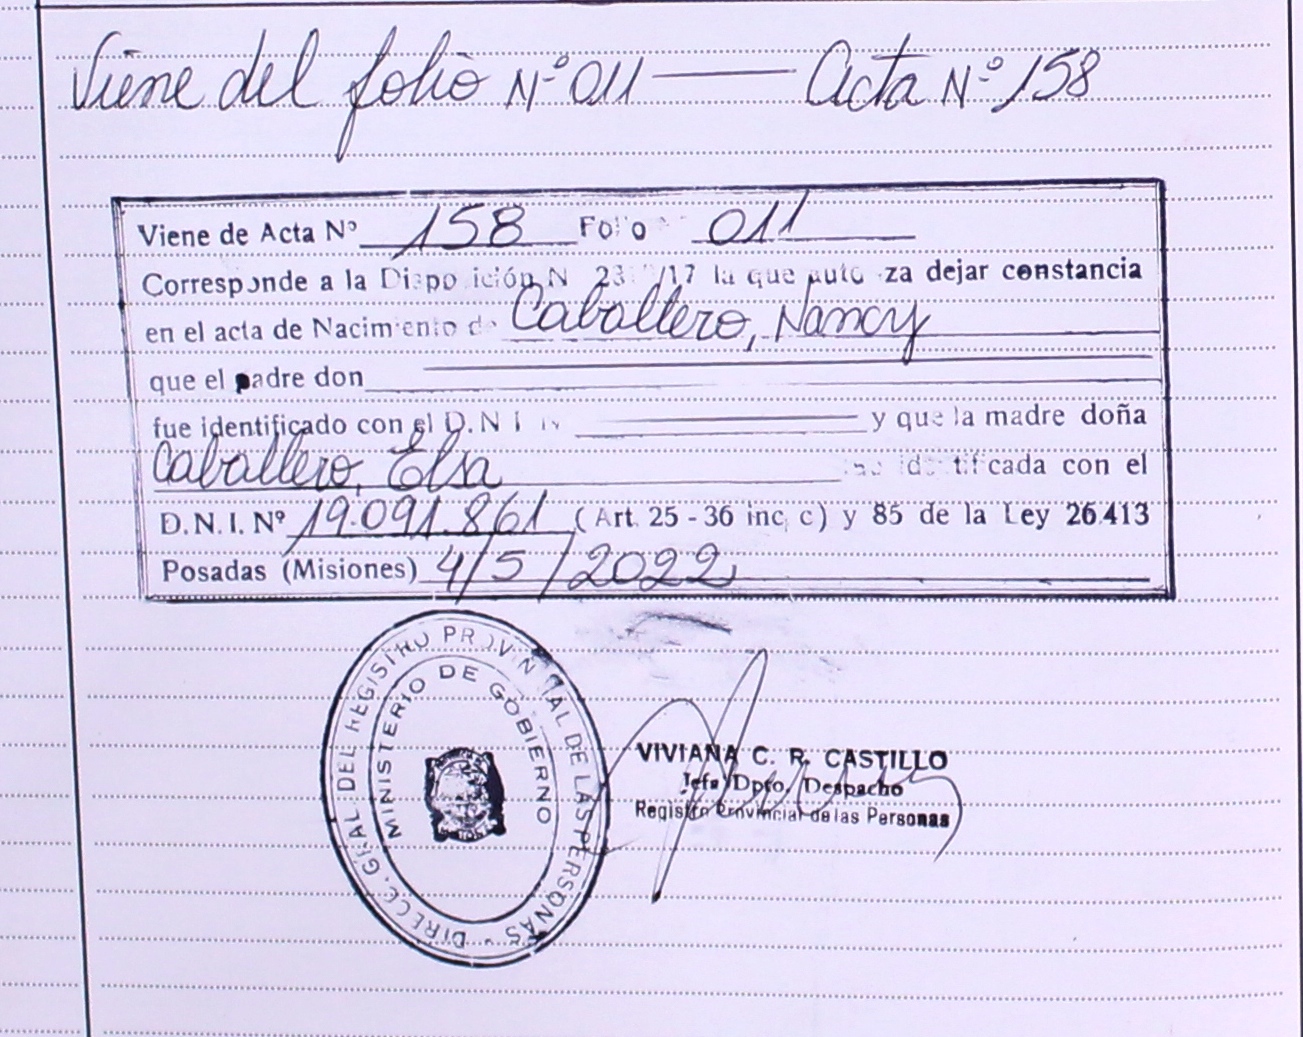 Viene del folio Nº 011 — Acta Nº 158
Viene de Acta Nº 158 Folio 011
Corresponde a la Disposición N 23 /17 la que autoriza dejar constancia
en el acta de Nacimiento de Caballero, Nancy
que el padre don
fue identificado con el D.N.I. N y que la madre doña
Caballero, Elsa identificada con el
D.N.I. Nº 19.091.861 (Art. 25 - 36 inc, c) y 85 de la Ley 26.413
Posadas (Misiones) 4/5/2022
DIRECC. GRAL DEL REGISTRO PROVINCIAL DE LAS PERSONAS
MINISTERIO DE GOBIERNO
VIVIANA C. R. CASTILLO
Jefa Dpto. Despacho
Registro Provincial de las Personas